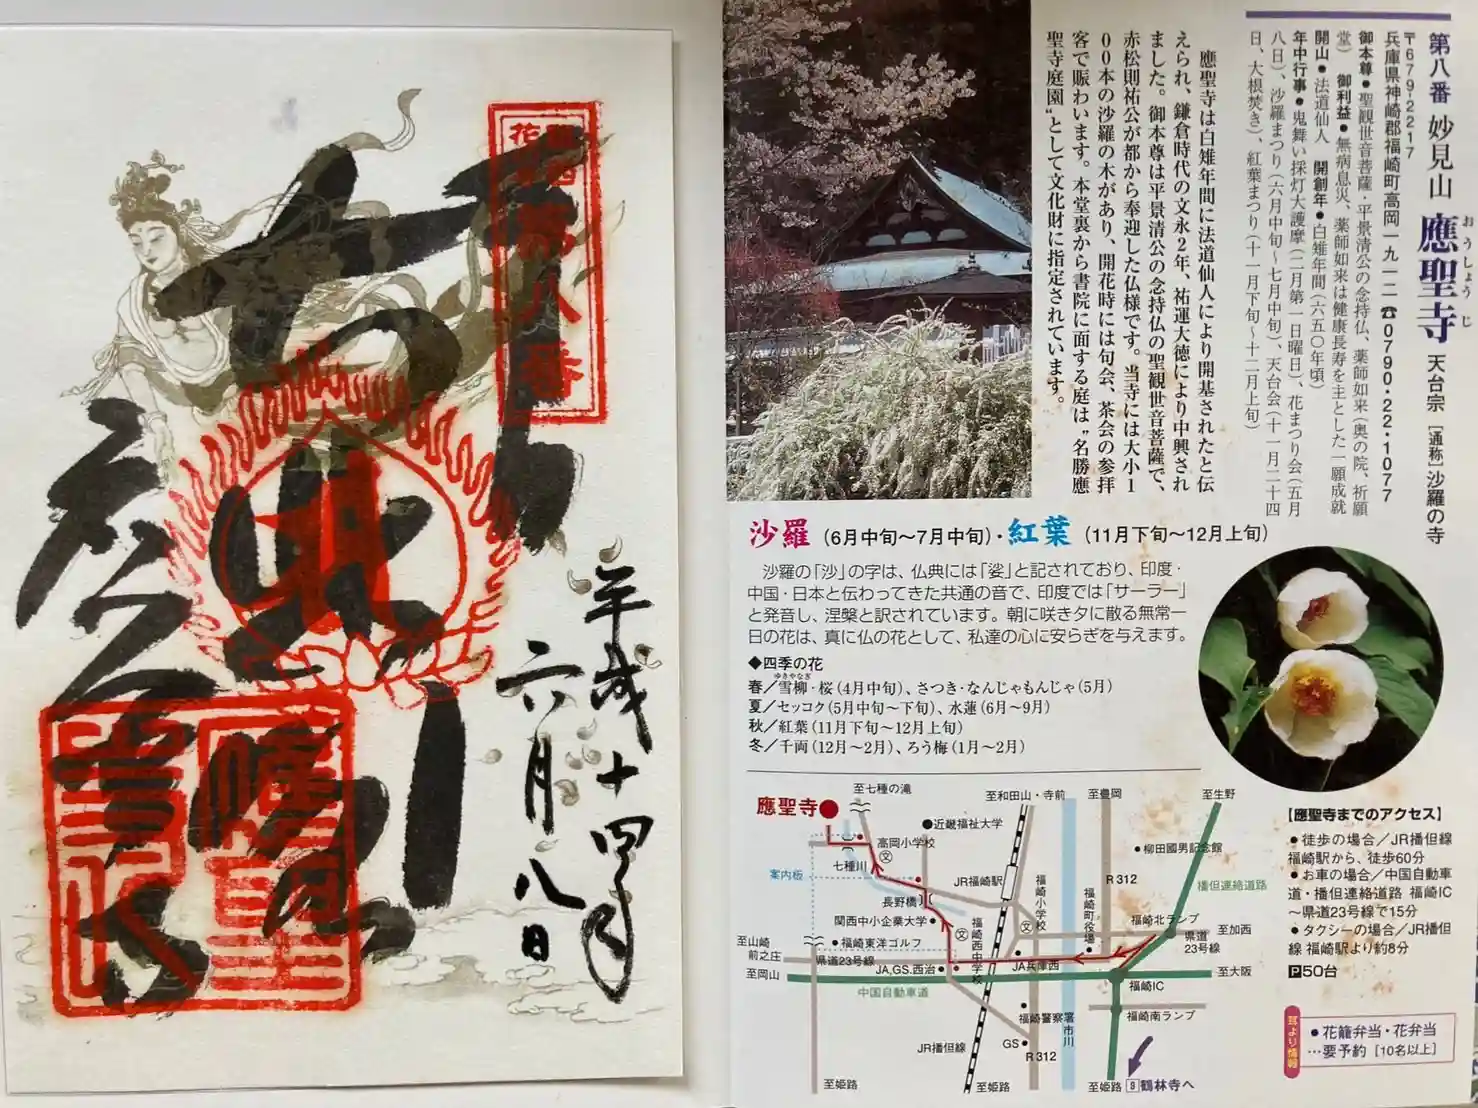 平成十四年
六月八日
第八番
第八番 妙見山 應聖寺 天台宗 [通称]沙羅の寺
おうしょうじ
〒679-2217
兵庫県神崎郡福崎町高岡一九一二 ☎0790・22・1077
御本尊●聖観世音菩薩・平景清公の念持仏、薬師如来(奥の院、祈願
堂) 御利益●無病息災、薬師如来は健康長寿を主とした一願成就
開山●法道仙人 開創年●白雉年間(六五〇年頃)
年中行事●鬼舞い採灯大護摩(二月第一日曜日)、花まつり会(五月
八日)、沙羅まつり(六月中旬〜七月中旬)、天台会(十一月二十四
日、大根焚き)、紅葉まつり(十一月下旬〜十二月上旬)
應聖寺は白雉年間に法道仙人により開基されたと伝
えられ、鎌倉時代の文永2年、祐運大徳により中興され
ました。御本尊は平景清公の念持仏の聖観世音菩薩で、
赤松則祐公が都から奉迎した仏様です。当寺には大小1
00本の沙羅の木があり、開花時には句会、茶会の参拝
客で賑わいます。本堂裏から書院に面する庭は〝名勝應
聖寺庭園〟として文化財に指定されています。
沙羅(6月中旬〜7月中旬)・紅葉(11月下旬〜12月上旬)
沙羅の「沙」の字は、仏典には「娑」と記されており、印度・
中国・日本と伝わってきた共通の音で、印度では「サーラー」
と発音し、涅槃と訳されています。朝に咲き夕に散る無常一
日の花は、真に仏の花として、私達の心に安らぎを与えます。
◆四季の花
ゆきやなぎ
春/雪柳・桜(4月中旬)、さつき・なんじゃもんじゃ(5月)
夏/セッコク(5月中旬〜下旬)、水蓮(6月〜9月)
秋/紅葉(11月下旬〜12月上旬)
冬/千両(12月〜2月)、ろう梅(1月〜2月)
應聖寺
至七種の滝
至和田山・寺前
至豊岡
至生野
近畿福祉大学
高岡小学校
文
柳田國男記念館
案内板
七種川
JR福崎駅
R312
播但連絡道路
長野橋
関西中小企業大学
福崎小学校
文
福崎町役場
福崎北ランプ
至山崎
前之庄
福崎東洋ゴルフ
福崎西中学校
文
県道
23号線
至加西
県道23号線
JA,GS.西治
JA兵庫西
至岡山
至大阪
中国自動車道
福崎IC
福崎警察署
市川
福崎南ランプ
GS
JR播但線
R312
至姫路
至姫路
至姫路
9 鶴林寺へ
【應聖寺までのアクセス】
●徒歩の場合/JR播但線
福崎駅から、徒歩60分
●お車の場合/中国自動車
道・播但連絡道路 福崎IC
〜県道23号線で15分
●タクシーの場合/JR播但
線 福崎駅より約8分
P50台
耳より情報
●花籠弁当・花弁当
…要予約[10名以上]